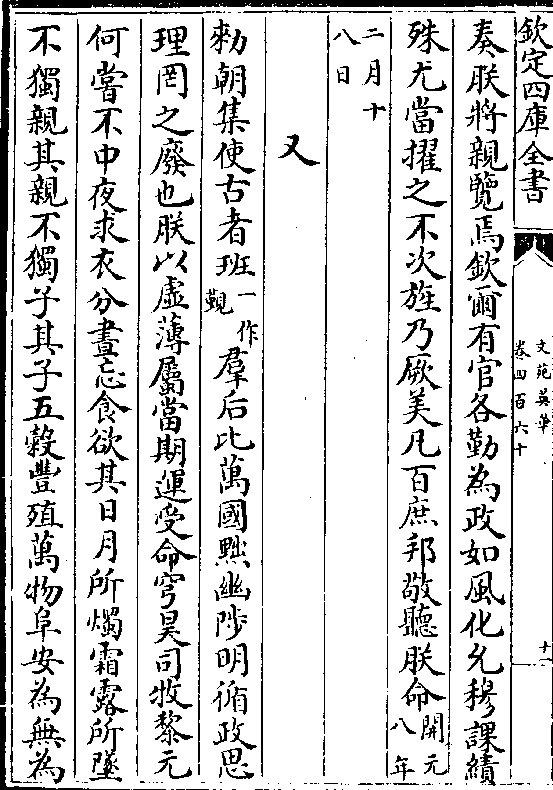 欽定四庫全書
文苑英華
卷四百六十
十一
奏朕將親覽焉欽爾有官各勤為政如風化允穆課績
殊尤當擢之不次旌乃厥美凡百庶邦敬聽朕命開元八年
二月十八日
又
勑朝集使古者班一作覲羣后比萬國黜幽陟明循政思
理罔之廢也朕以虛薄屬當期運受命穹昊司牧黎元
何嘗不中夜求衣分晝忘食欲其日月所燭霜露所墜
不獨親其親不獨子其子五穀豐殖萬物阜安為無為